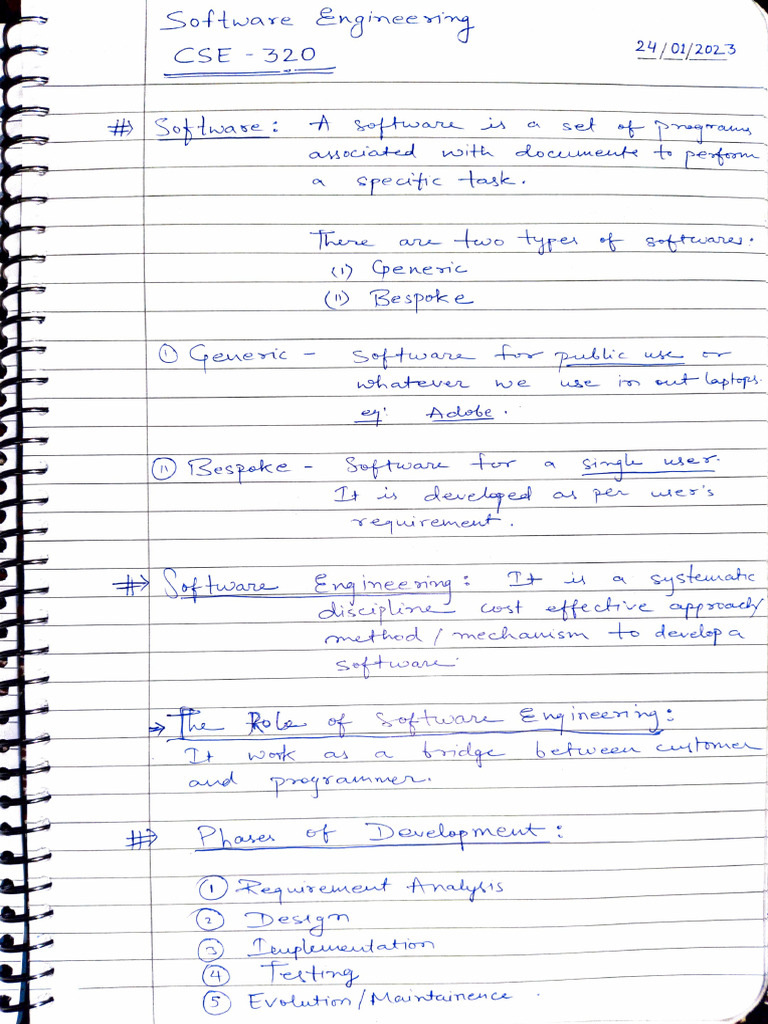 Software Engineering
CSE - 320
24/01/2023
#> Software : A software is a set of programs
associated with documents to perform
a specific task.
There are two types of softwares.
(i) Generic
(ii) Bespoke
(i) Generic - Software for public use or
whatever we use in out laptops.
eg: Adobe.
(ii) Bespoke - Software for a single user.
It is developed as per user's
requirement.
#> Software Engineering : It is a systematic
discipline cost effective approach/
method / mechanism to develop a
software.
→ The Role of Software Engineering :
It work as a bridge between customer
and programmer.
#> Phases of Development :
① Requirement Analysis
② Design
③ Implementation
④ Testing
⑤ Evolution / Maintainence .